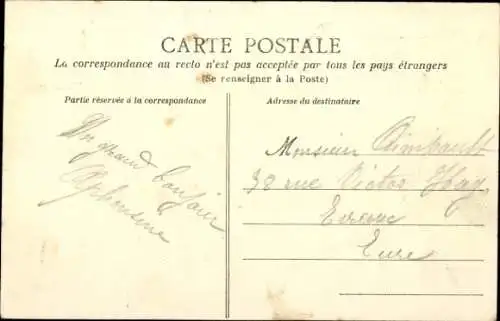 CARTE POSTALE
La correspondance au recto n'est pas acceptée par tous les pays étrangers
(Se renseigner à la Poste)
Partie réservée à la correspondance
Adresse du destinataire
Un grand bonjour
Alphonsine
Monsieur Rimbault
38 rue Victor Hugo
Evreux
Eure